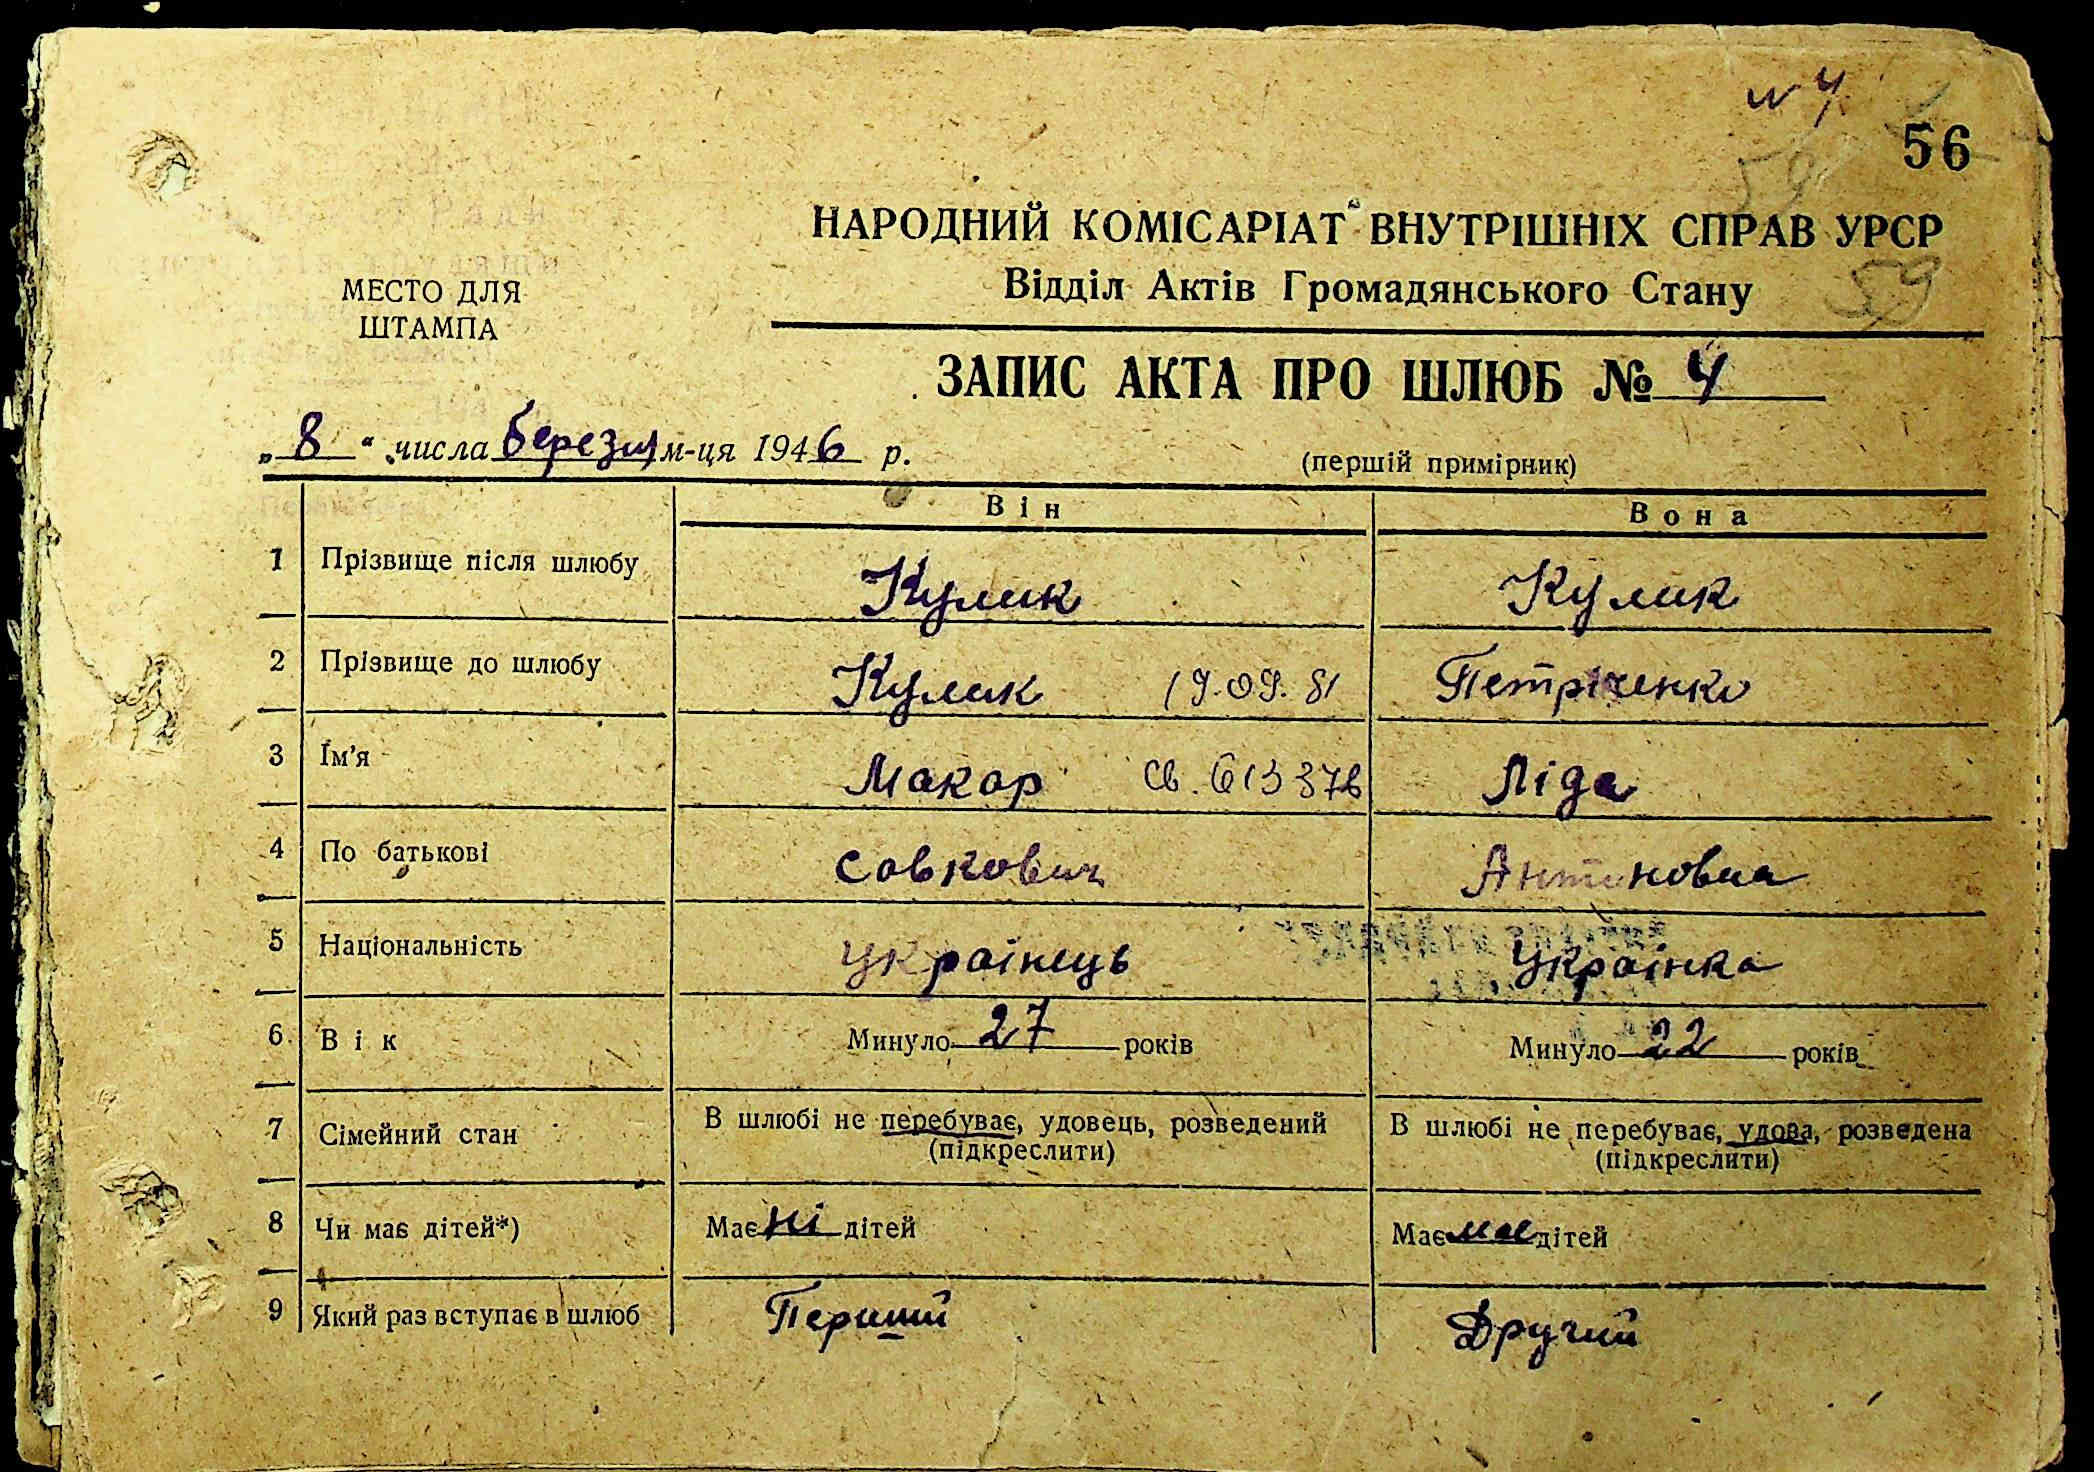 № 4
56
59
НАРОДНИЙ КОМІСАРІАТ ВНУТРІШНІХ СПРАВ УРСР
Відділ Актів Громадянського Стану
59
МЕСТО ДЛЯ
ШТАМПА
ЗАПИС АКТА ПРО ШЛЮБ № 4
„8“ числа березня м-ця 1946 р.
(першій примірник)
Він Вона
1 Прізвище після шлюбу Кулик Кулик
2 Прізвище до шлюбу Кулик 19.09.81 Петріченко
3 Ім'я Макар св. 613376 Ліда
4 По батькові Совкович Антоновна
5 Національність Українець Українка
6 Вік Минуло 27 років Минуло 22 років
7 Сімейний стан В шлюбі не перебуває, удовець, розведений В шлюбі не перебуває, удова, розведена
(підкреслити) (підкреслити)
8 Чи має дітей*) Має ні дітей Має має дітей
9 Який раз вступає в шлюб Перший Другий